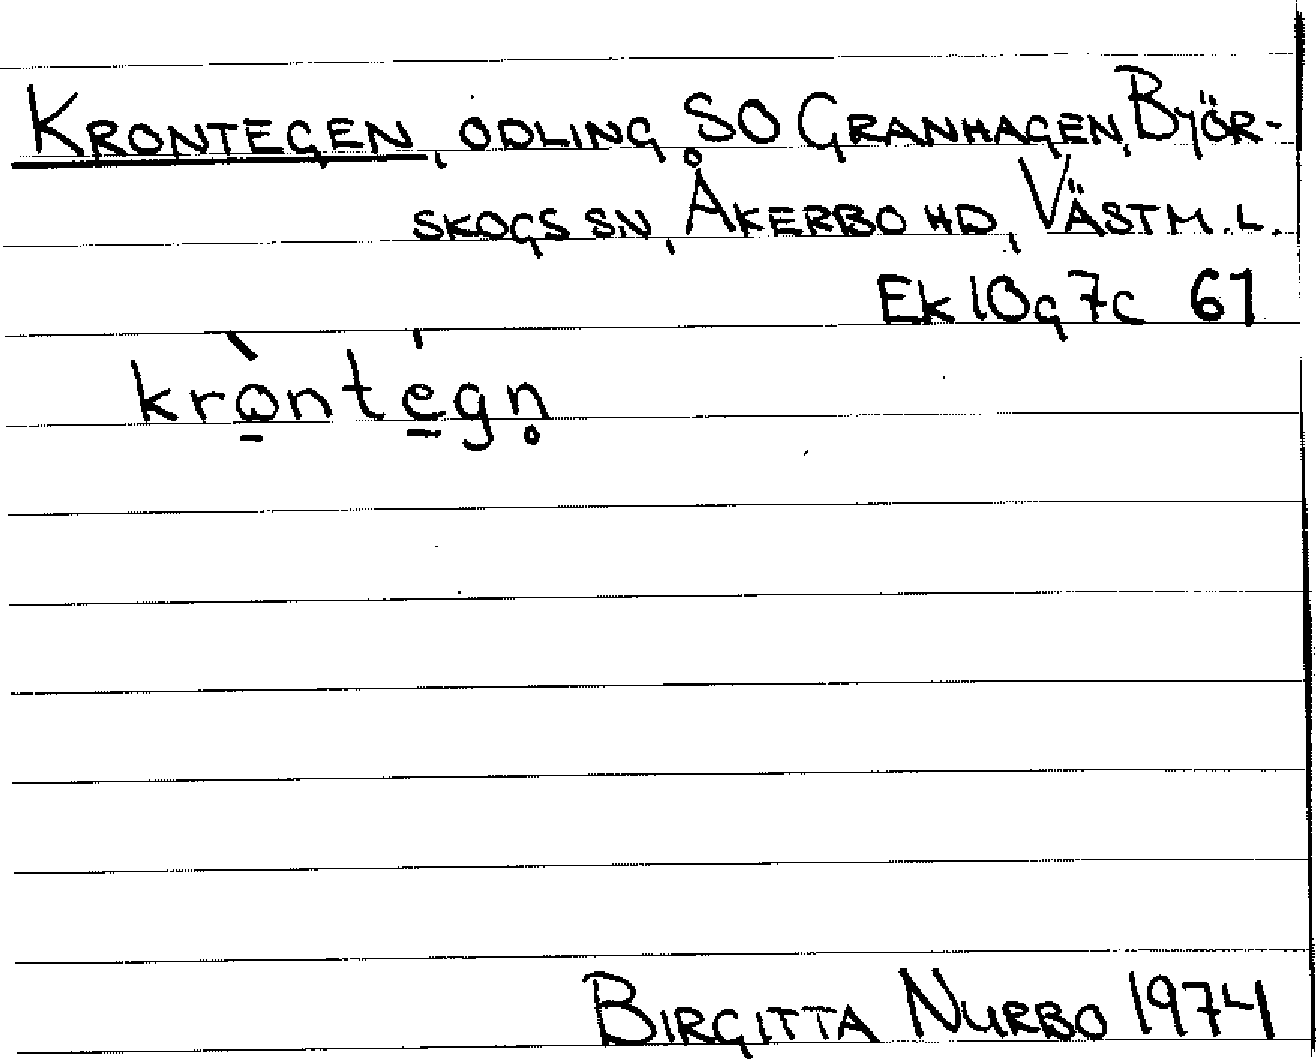 KRONTEGEN, ODLING SO GRANHAGEN, BJÖR-
SKOGS SN, ÅKERBO HD, VÄSTM. L.
Ek 10g 7c 61
kròntégn̥
BIRGITTA NURBO 1974